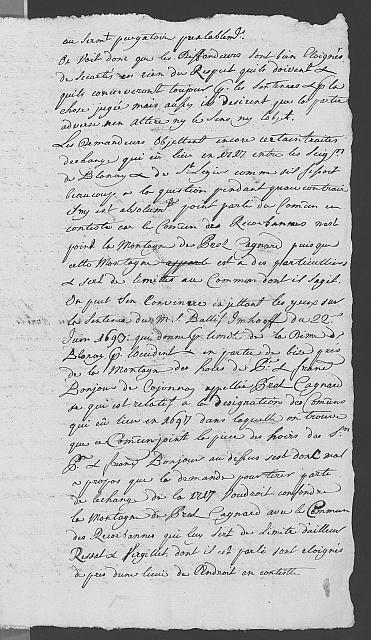 au serment purgatoire prealablemt.
On Voit donc que les Deffendeurs sont bien Eloignés
de s'ecarter en rien du Respect quils doivent &
quils conserveront toujour pr. les sentences & pr. la
chose jugée mais aussy ils desirent que la partie
adverse n'en Altere ny le Sens ny l'objet.
Les Demandeurs Objectent encore certain traitté
dechange qui eu lieu en 1717 entre les Seigrs
de Blonay & de St. comme s'il faisoit
beaucoup a la question pendant quau contraire
Iny est absolumt. point parlé du Comun en
conteste car le Comun des Recorbannes n'est
point la Montagne de Bret Cagnard puis que
cette Montagne est a des particulliers
& sert de limites au Commun dont il sagit.
On peut sen Convaincre en jettant les yeux sur
la Sentence du M. S. Ballif Imhooff du 22e
Juin 1693. qui donne pr. limite de la Dime de
Blonay pr. loccident & en partie de bise prés
de la Montagne des hoirs de Pr. & franç.
Bonjour de Cojonnay appellée Bret Cagnard
ce qui est relatif a la designation des Comuns
qui eu lieu en 1697 dans laquelle on trouve
que ce Comun joint la piece des hoirs des Srs
Pr. & franç Bonjour au dessus cest donc mal
a propos que la demande pour tirer partie
de lechange de la 1717 Voudroit confondre
la Montagne de Bret Cagnard avec le Commun
des Recorbannes qui luy sert de limite d'ailleur
Resset & Virgillet dont il est parlé sont eloignés
de prés dune lieue de lendroit en conteste